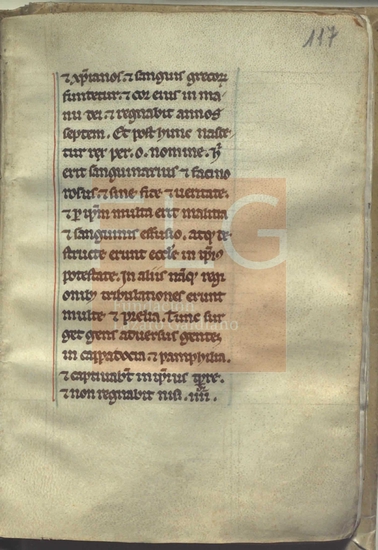 117
⁊ xp̄ianos. ⁊ sanguis grecoꝝ
fundetur. ⁊ cor eius in ma-
nu dei. ⁊ regnabit annos
septem. Et post hunc nasce
tur rex per .o. nomine. h̄
erit sanguinarius ⁊ facino
rosus. ⁊ sine fide ⁊ ueritate.
⁊ ꝑ ip̄m multa erit malitia
⁊ sanguinis effusio. atqꝫ de
structe erunt eccl̄e in ip̄iꝰ
potestate. In aliis nāqꝫ regi
onibꝫ tribulationes erunt
multe ⁊ prelia. Tunc sur
get gens aduersus gentem
in cappadocia ⁊ pamphilia.
⁊ captiuabt̄ in ip̄ius tp̄re.
⁊ non regnabit nisi .iiii.
FLG
Fundación
Lázaro Galdiano